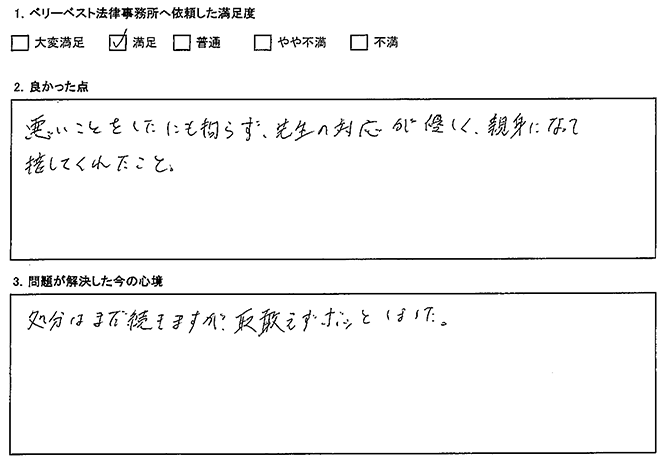 1. ベリーベスト法律事務所へ依頼した満足度
□ 大変満足 ☑ 満足 □ 普通 □ やや不満 □ 不満
2. 良かった点
悪いことをしたにも拘らず、先生の対応が優しく、親身になって
接してくれたこと。
3. 問題が解決した今の心境
処分はまだ続きますが、取敢えずホッとしました。